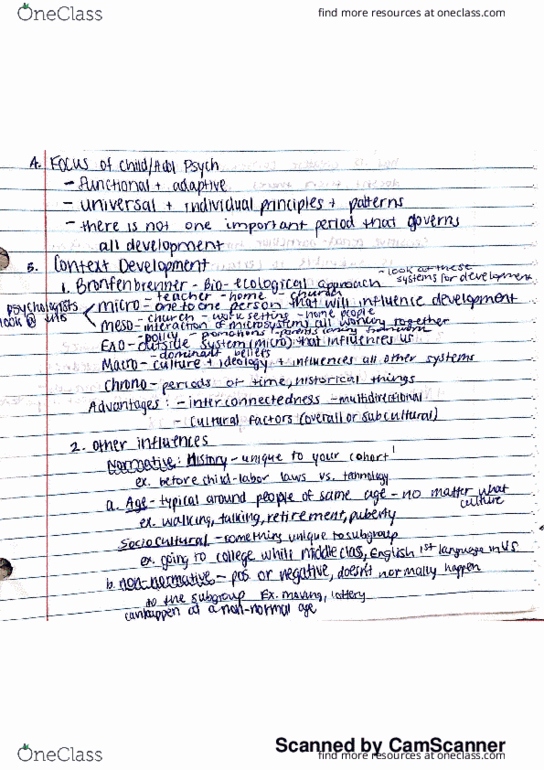 OneClass
find more resources at oneclass.com
4. Focus of Child/Adol Psych
- functional + adaptive
- universal + individual principles + patterns
- there is not one important period that governs
all development
5. Context Development
- look at these
systems for development
1. Bronfenbrenner - Bio-ecological approach
- teacher - home church
psychologists
look @ this
micro - one to one person that will influence development
- church - work setting - home people
meso - interaction of microsystems all working together
- policy - promotions - parents
Exo - outside system (micro) that influences us
- dominant beliefs
Macro - culture + ideology + influences all other systems
Chrono - periods of time, historical things
Advantages: - interconnectedness - multidirectional
- Cultural factors (overall or subcultural)
2. Other influences
Normative: History - unique to your cohort
ex. before child-labor laws vs. technology
a. Age - typical around people of same age - no matter what
culture
ex. walking, talking, retirement, puberty
Sociocultural - something unique to subgroup
ex. going to college while middle class, English 1st language in US
b. non-normative - pos. or negative, doesn't normally happen
to the subgroup Ex. moving, lottery
can happen at a non-normal age
Scanned by CamScanner
OneClass
find more resources at oneclass.com